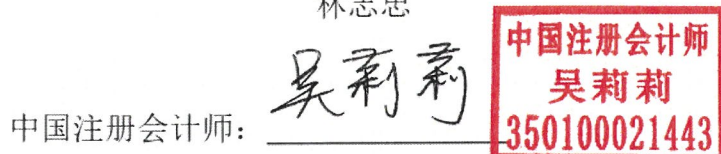 林志忠
吴莉莉
中国注册会计师：
中国注册会计师
吴莉莉
350100021443